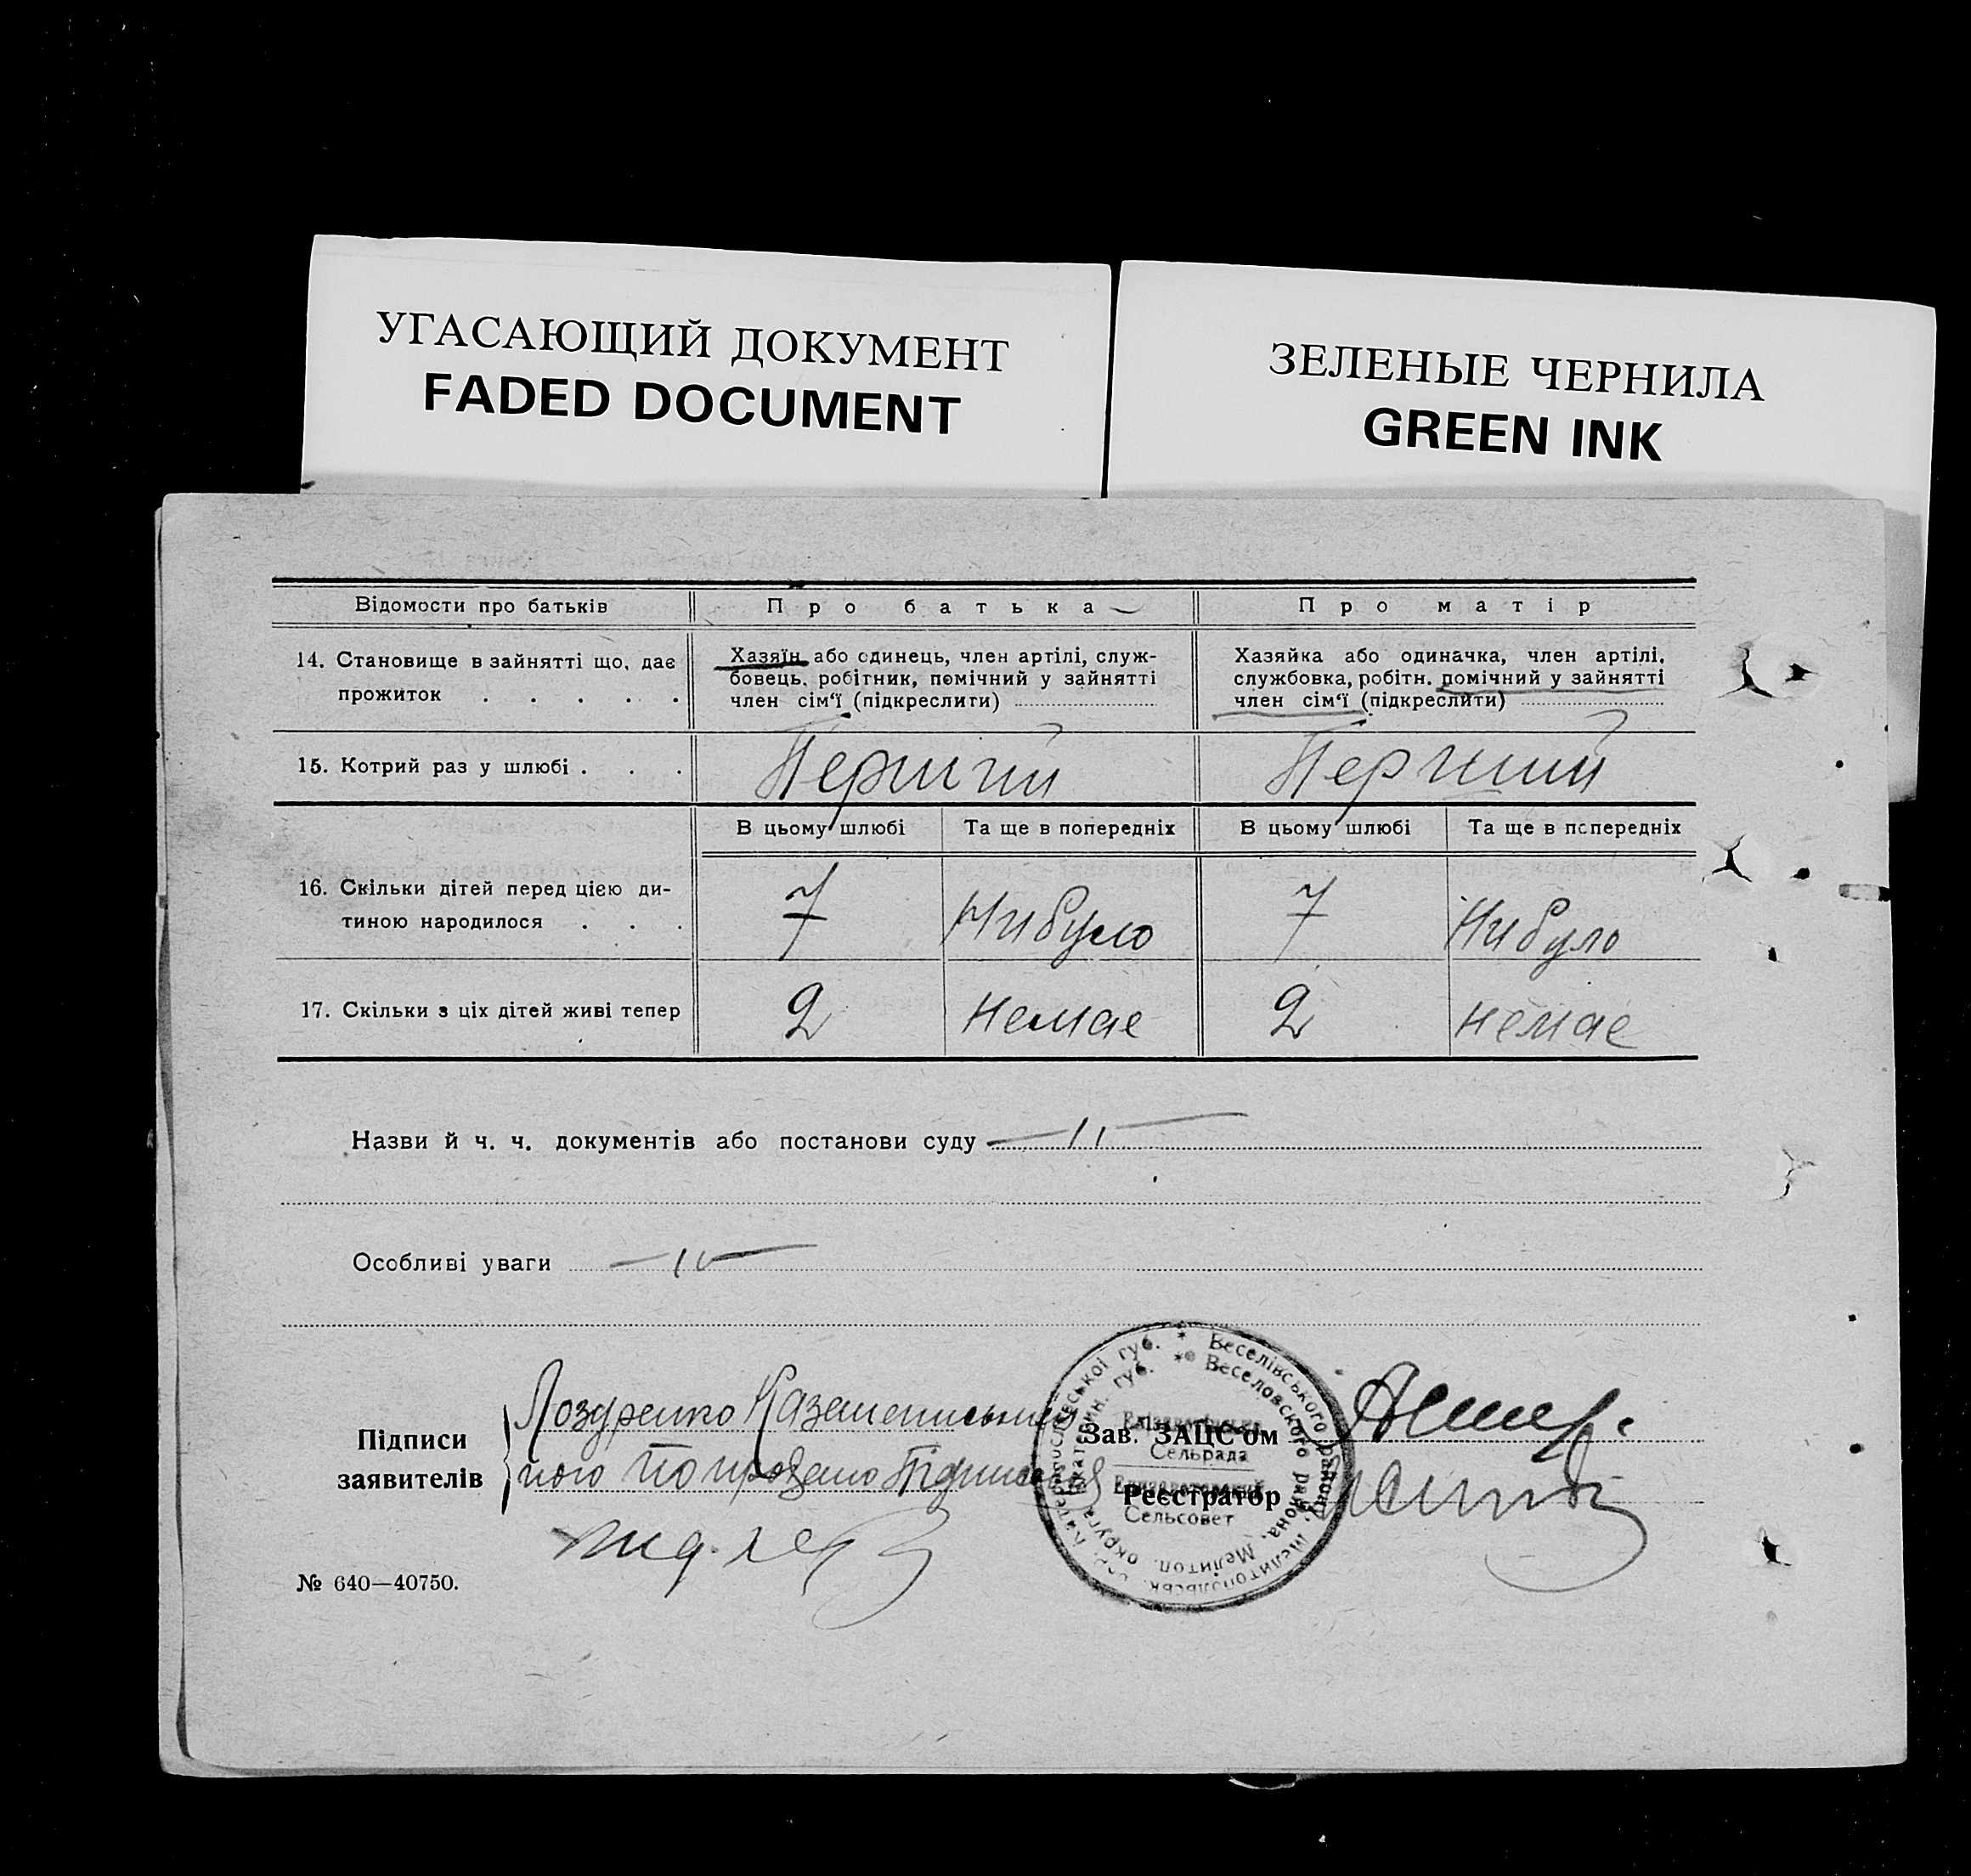 УГАСАЮЩИЙ ДОКУМЕНТ
FADED DOCUMENT
ЗЕЛЕНЫЕ ЧЕРНИЛА
GREEN INK
Відомости про батьків
Про батька
Про матір
14. Становище в зайнятті що, дає
прожиток . . . . .
Хазяїн або одинець, член артілі, служ-
бовець, робітник, помічний у зайнятті
член сім‘ї (підкреслити)
Хазяйка або одиначка, член артілі,
службовка, робітн. помічний у зайнятті
член сім‘ї (підкреслити)
15. Котрий раз у шлюбі . . .
Перший
Перший
В цьому шлюбі
Та ще в попередніх
В цьому шлюбі
Та ще в попередніх
16. Скільки дітей перед цією ди-
тиною народилося . . .
7
Нибуло
7
Нибуло
17. Скільки з ціх дітей живі тепер
2
немае
2
немае
Назви й ч. ч. документів або постанови суду —〃—
Особливі уваги —〃—
Підписи
заявителів
Зав. ЗАЦС‘ом
Реєстратор
Веселівського району, Мелитопольськ.
Веселовского района, Мелитоп. округа Екатерин. губ.
Сельрада
Сельсовет
№ 640—40750.